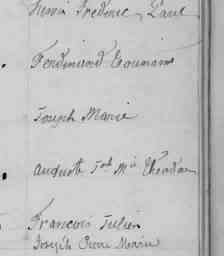 Henri Frédéric Paul
Ferdinand
Joseph Marie
Auguste Jph Mie Théodore
François Julien
Joseph Pierre Marie